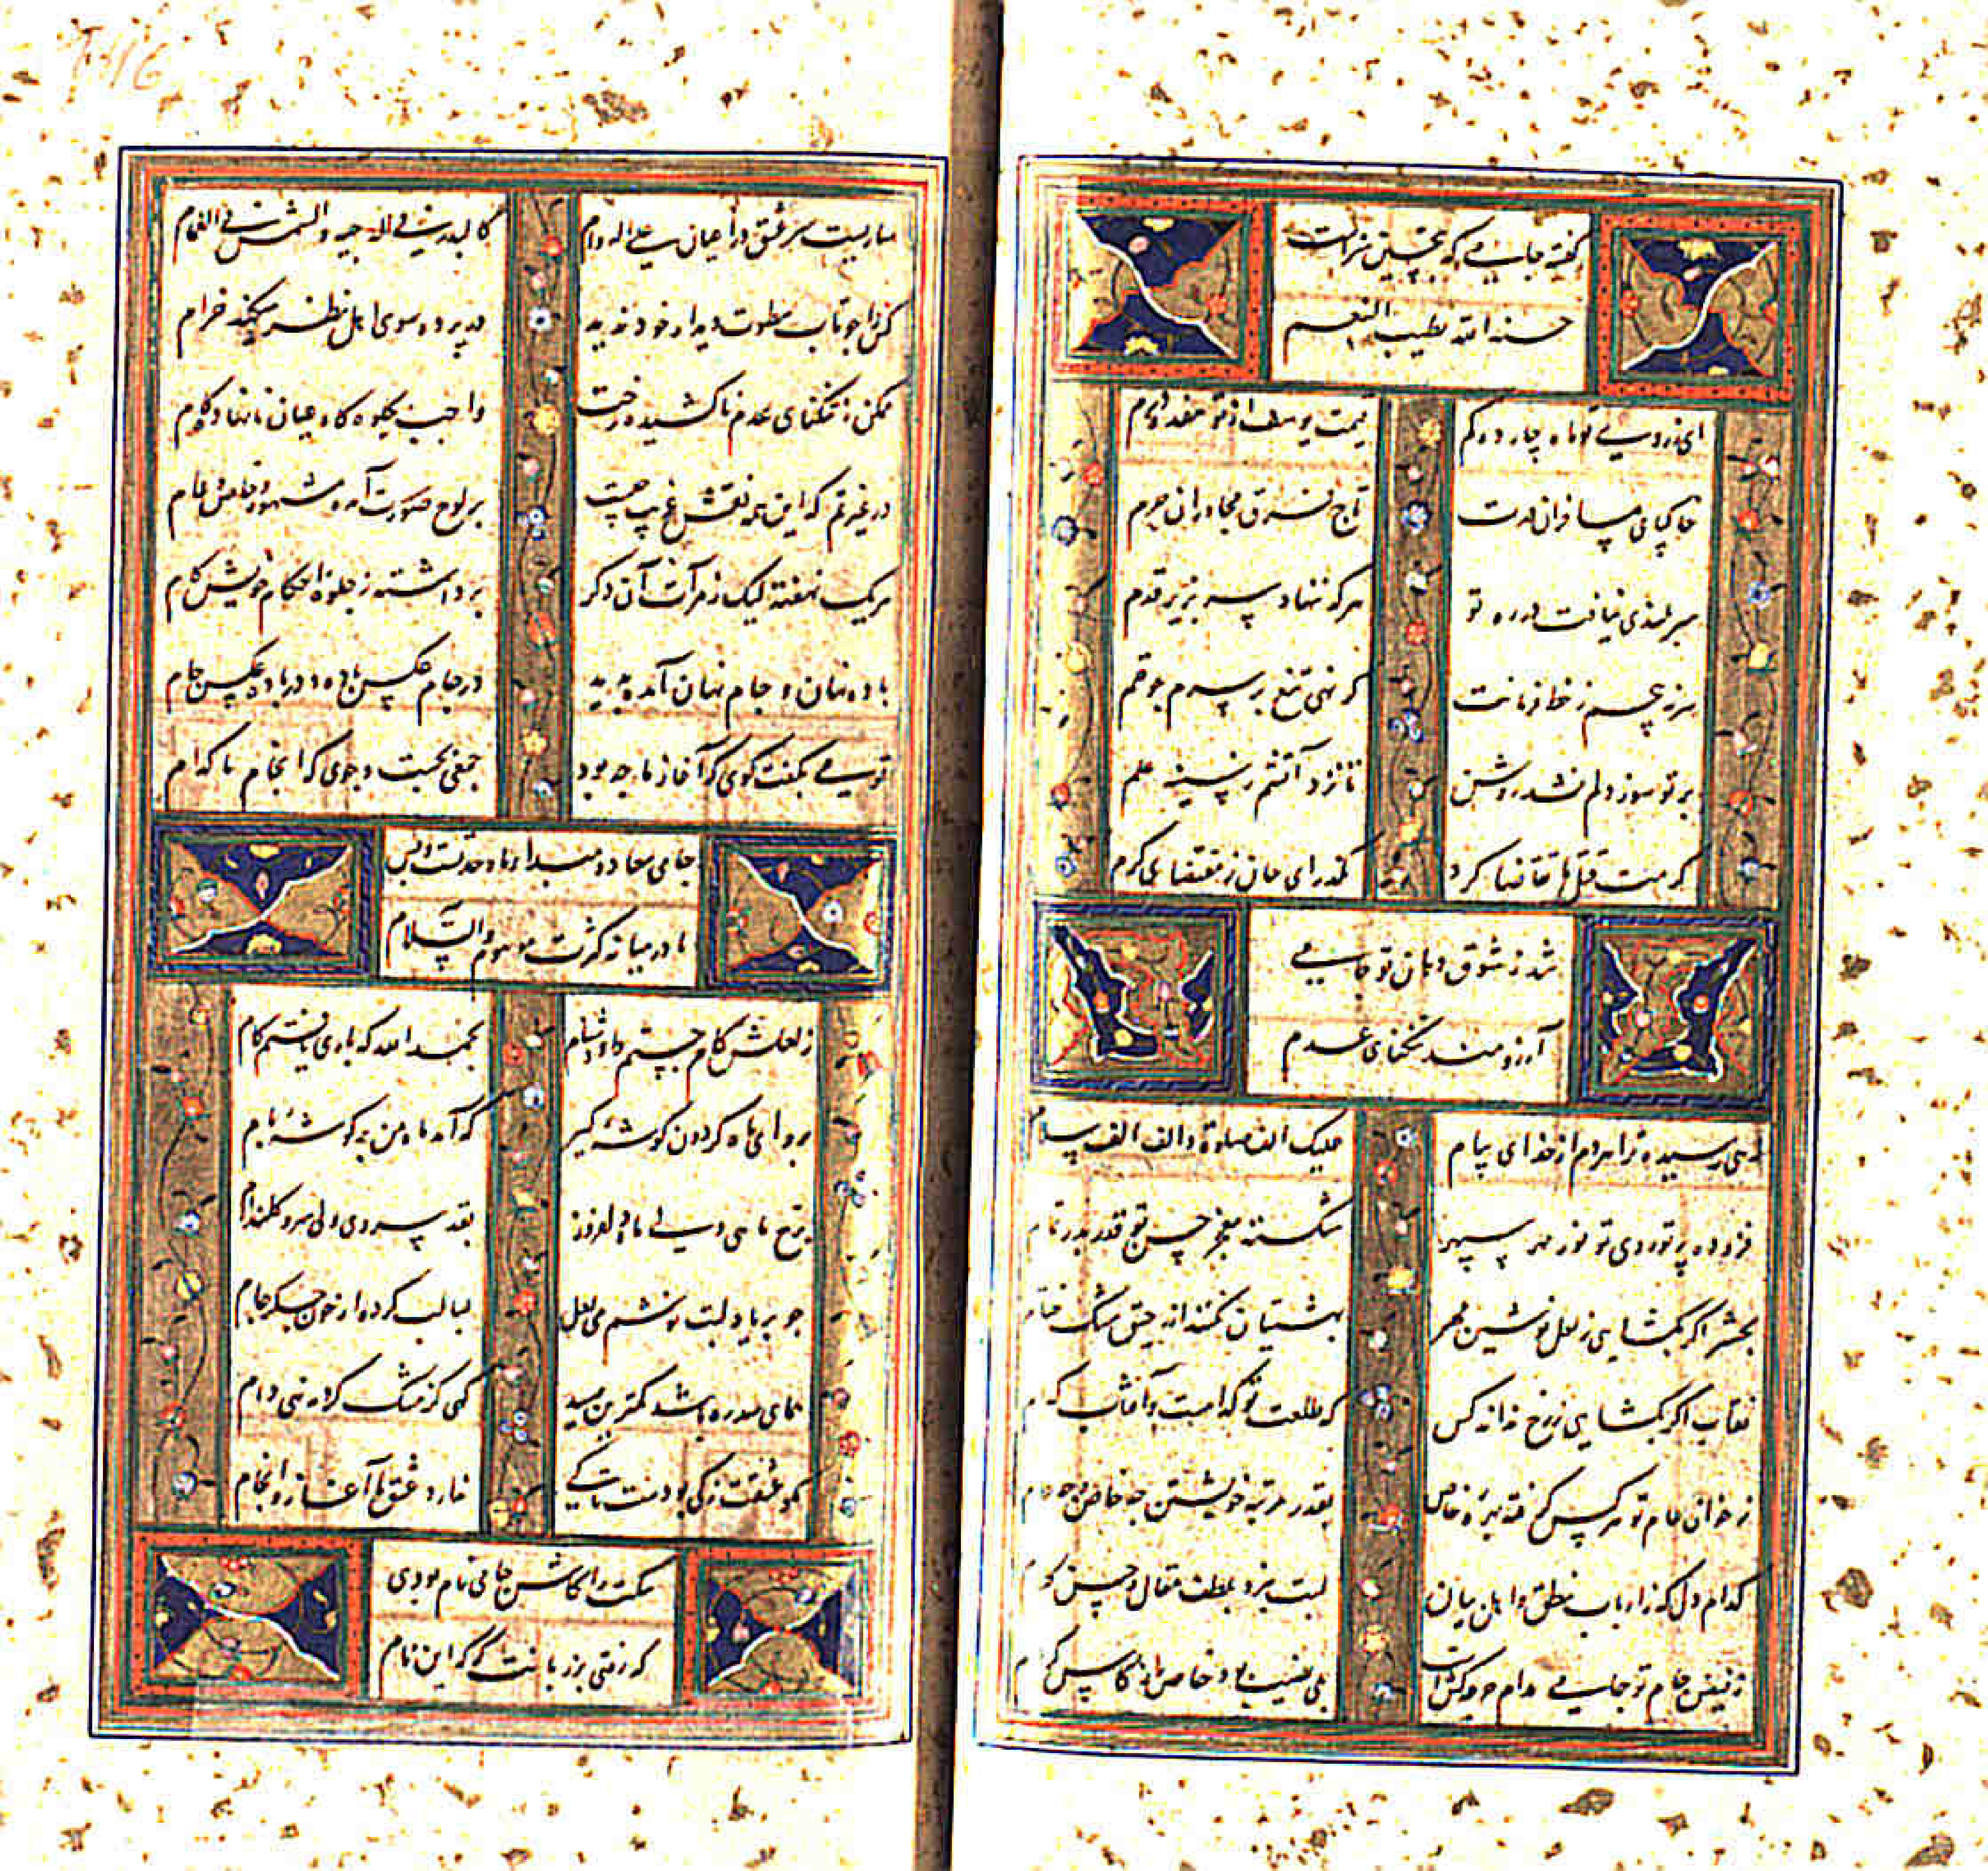 گفته جامی که تحقیق منزلت
حسنه الله بطیب النعم
ای ز روی تو ماه چارده کم
قیمت یوسف از تو هفده درم
خاکپای مسافران درت
تاج فرق مجاوران حرم
سربلندی نیافت در ره تو
هرکه ننهاد سر بزیر قدم
سر نپیچم ز خط فرمانت
گر نهی تیغ بر سرم چو قلم
بر تو سوز دلم نشد روشن
تا نزد آتشم ز سینه علم
کرمت قتل ما تقاضا کرد
مگذر ای جان ز مقتضای کرم
شد ز شوق دهان تو جامی
آرزومند تنگنای عدم
زهی رسیده ترا هر دم از خدای پیام
علیک الف صلوة و الف الف سلام
فزوده پرتو روی تو نور مهر سپهر
شکسته معجز حسن تو قدر بدر تمام
بحشر اگر بگشایی ز لعل نوشین مهر
بهشتیان نکنند از رحیق مشک ختام
نقاب اگر بگشایی ز رخ نداند کس
که طلعت تو کدامست و آفتاب کدام
ز خوان عام تو هر کس گرفته بهره خاص
بقدر مرتبه خویشتن چه خاص و چه عام
کدام دل که ز ارباب نطق و اهل بیان
لبت نبرد بلطف مقال و حسن کلام
ز فیض جام تو جامی مدام جرعه کش است
بلی نصیب بود خاص را ز کاس کرام
ساریست سر عشق در اعیان علی الدوام
کالبدر فی الدجیة والشمس فی الغمام
کس را چو تاب سطوت دیدار خود ندید
در پرده سوی اهل نظر میکند خرام
ممکن ز تنگنای عدم ناکشیده رخت
واجب بجلوه گاه عیان نانهاده گام
در غیرتم که این همه نقش غریب چیست
بر لوح صورت آمده مشهود خاص و عام
هر یک نهفته لیک ز مرآت آن دگر
برداشته ز جلوه احکام خویش کام
باده نهان و جام نهان آمده پدید
در جام عکس باده و در باده عکس جام
قومی بگفت و گوی که آغاز ما چه بود
جمعی بجست و جوی که انجام ما کدام
جامی معاد و مبدأ ما وحدتست و بس
ما در میانه کثرت موهوم والسلام
ز لعلش کام جستم داد دشنام
بحمدالله که باری یافتم کام
برو ای ماه گردون گوشه گیر
که آمد ماه من بر گوشه بام
برخ ماهی ولی ماه دلفروز
بقد سروی ولی سرو گلندام
چو بر یاد لبت نوشم می لعل
لبالب کرده از خون جگر جام
همای سدره باشد کمترین صید
گهی کز مشک گرد مه نهی دام
مگو عشقت ز کی بودست تا کی
ندارد عشق ما آغاز و انجام
سگت را کاش جامی نام بودی
که رفتی بر زبانت گه گه این نام